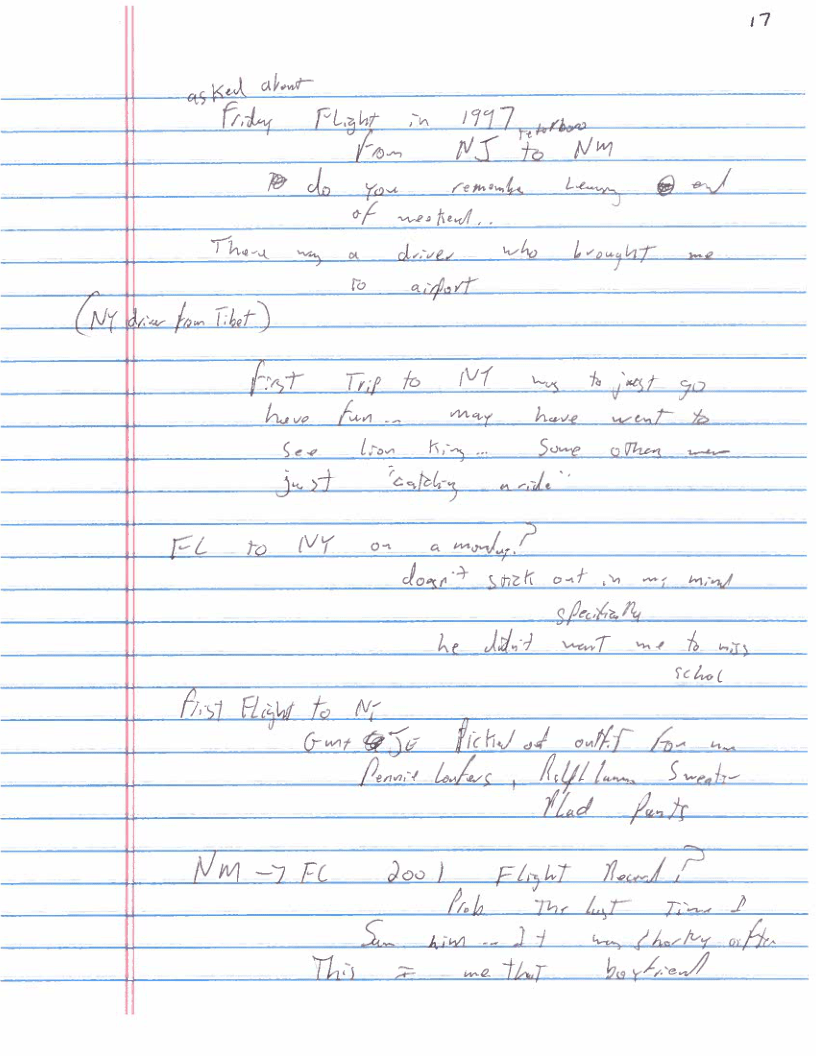 17
asked about
Friday Flight in 1997 Teterboro
From NJ to NM
do you remember Leaving end
of weekend..
There was a driver who brought me
to airport
(NY driver from Tibet)
First Trip to NY was to just go
have fun... may have went to
See Lion King... Some others were
just "catching a ride"
FL to NY on a monday?
doesn't stick out in my mind
specifically
he didn't want me to miss
schol
First Flight to
GM + JE Picked out outfit for me
Pennie Loafers, Ralph Lauren Sweater
Plad Pants
NM → FL 2001 Flight Record?
Prob The last Time I
Saw him... It was shortly after
This I me that boyfriend